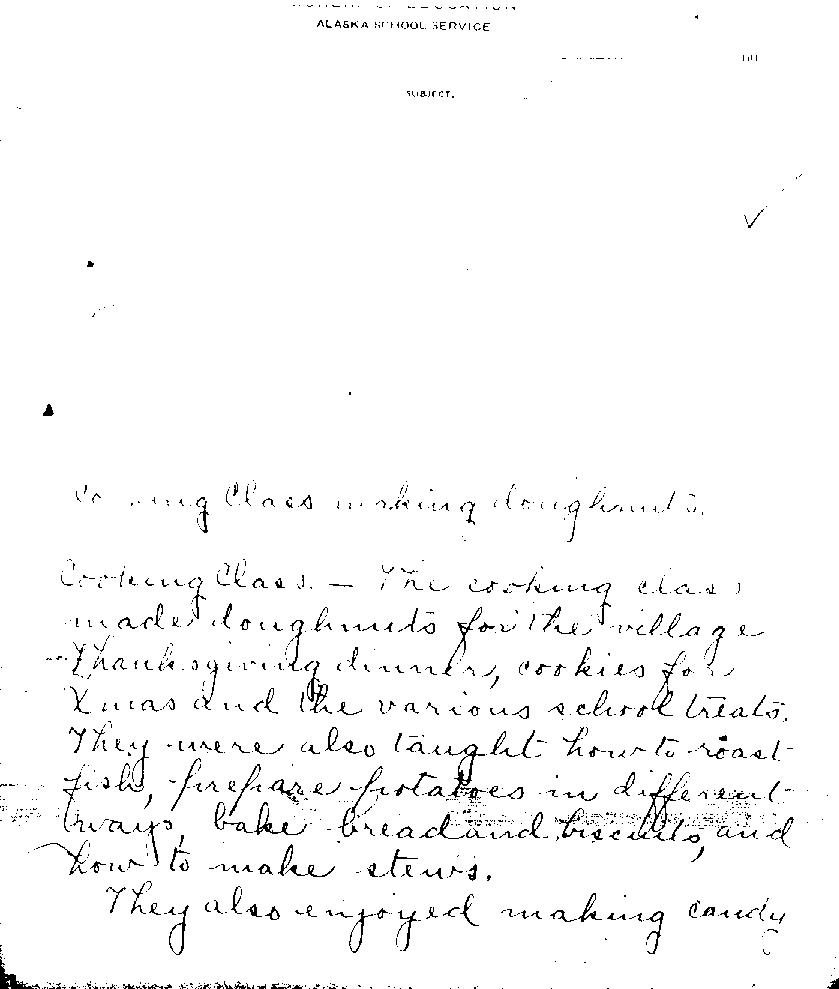 BUREAU OF EDUCATION
ALASKA SCHOOL SERVICE
SUBJECT.
Class making doughnuts.
Cooking Class. — The cooking class
made doughnuts for the village
Thanksgiving dinner, cookies for
Xmas and the various school treats.
They were also taught how to roast
fish, prepare potatoes in different
ways, bake bread and biscuits, and
how to make stews.
They also enjoyed making candy